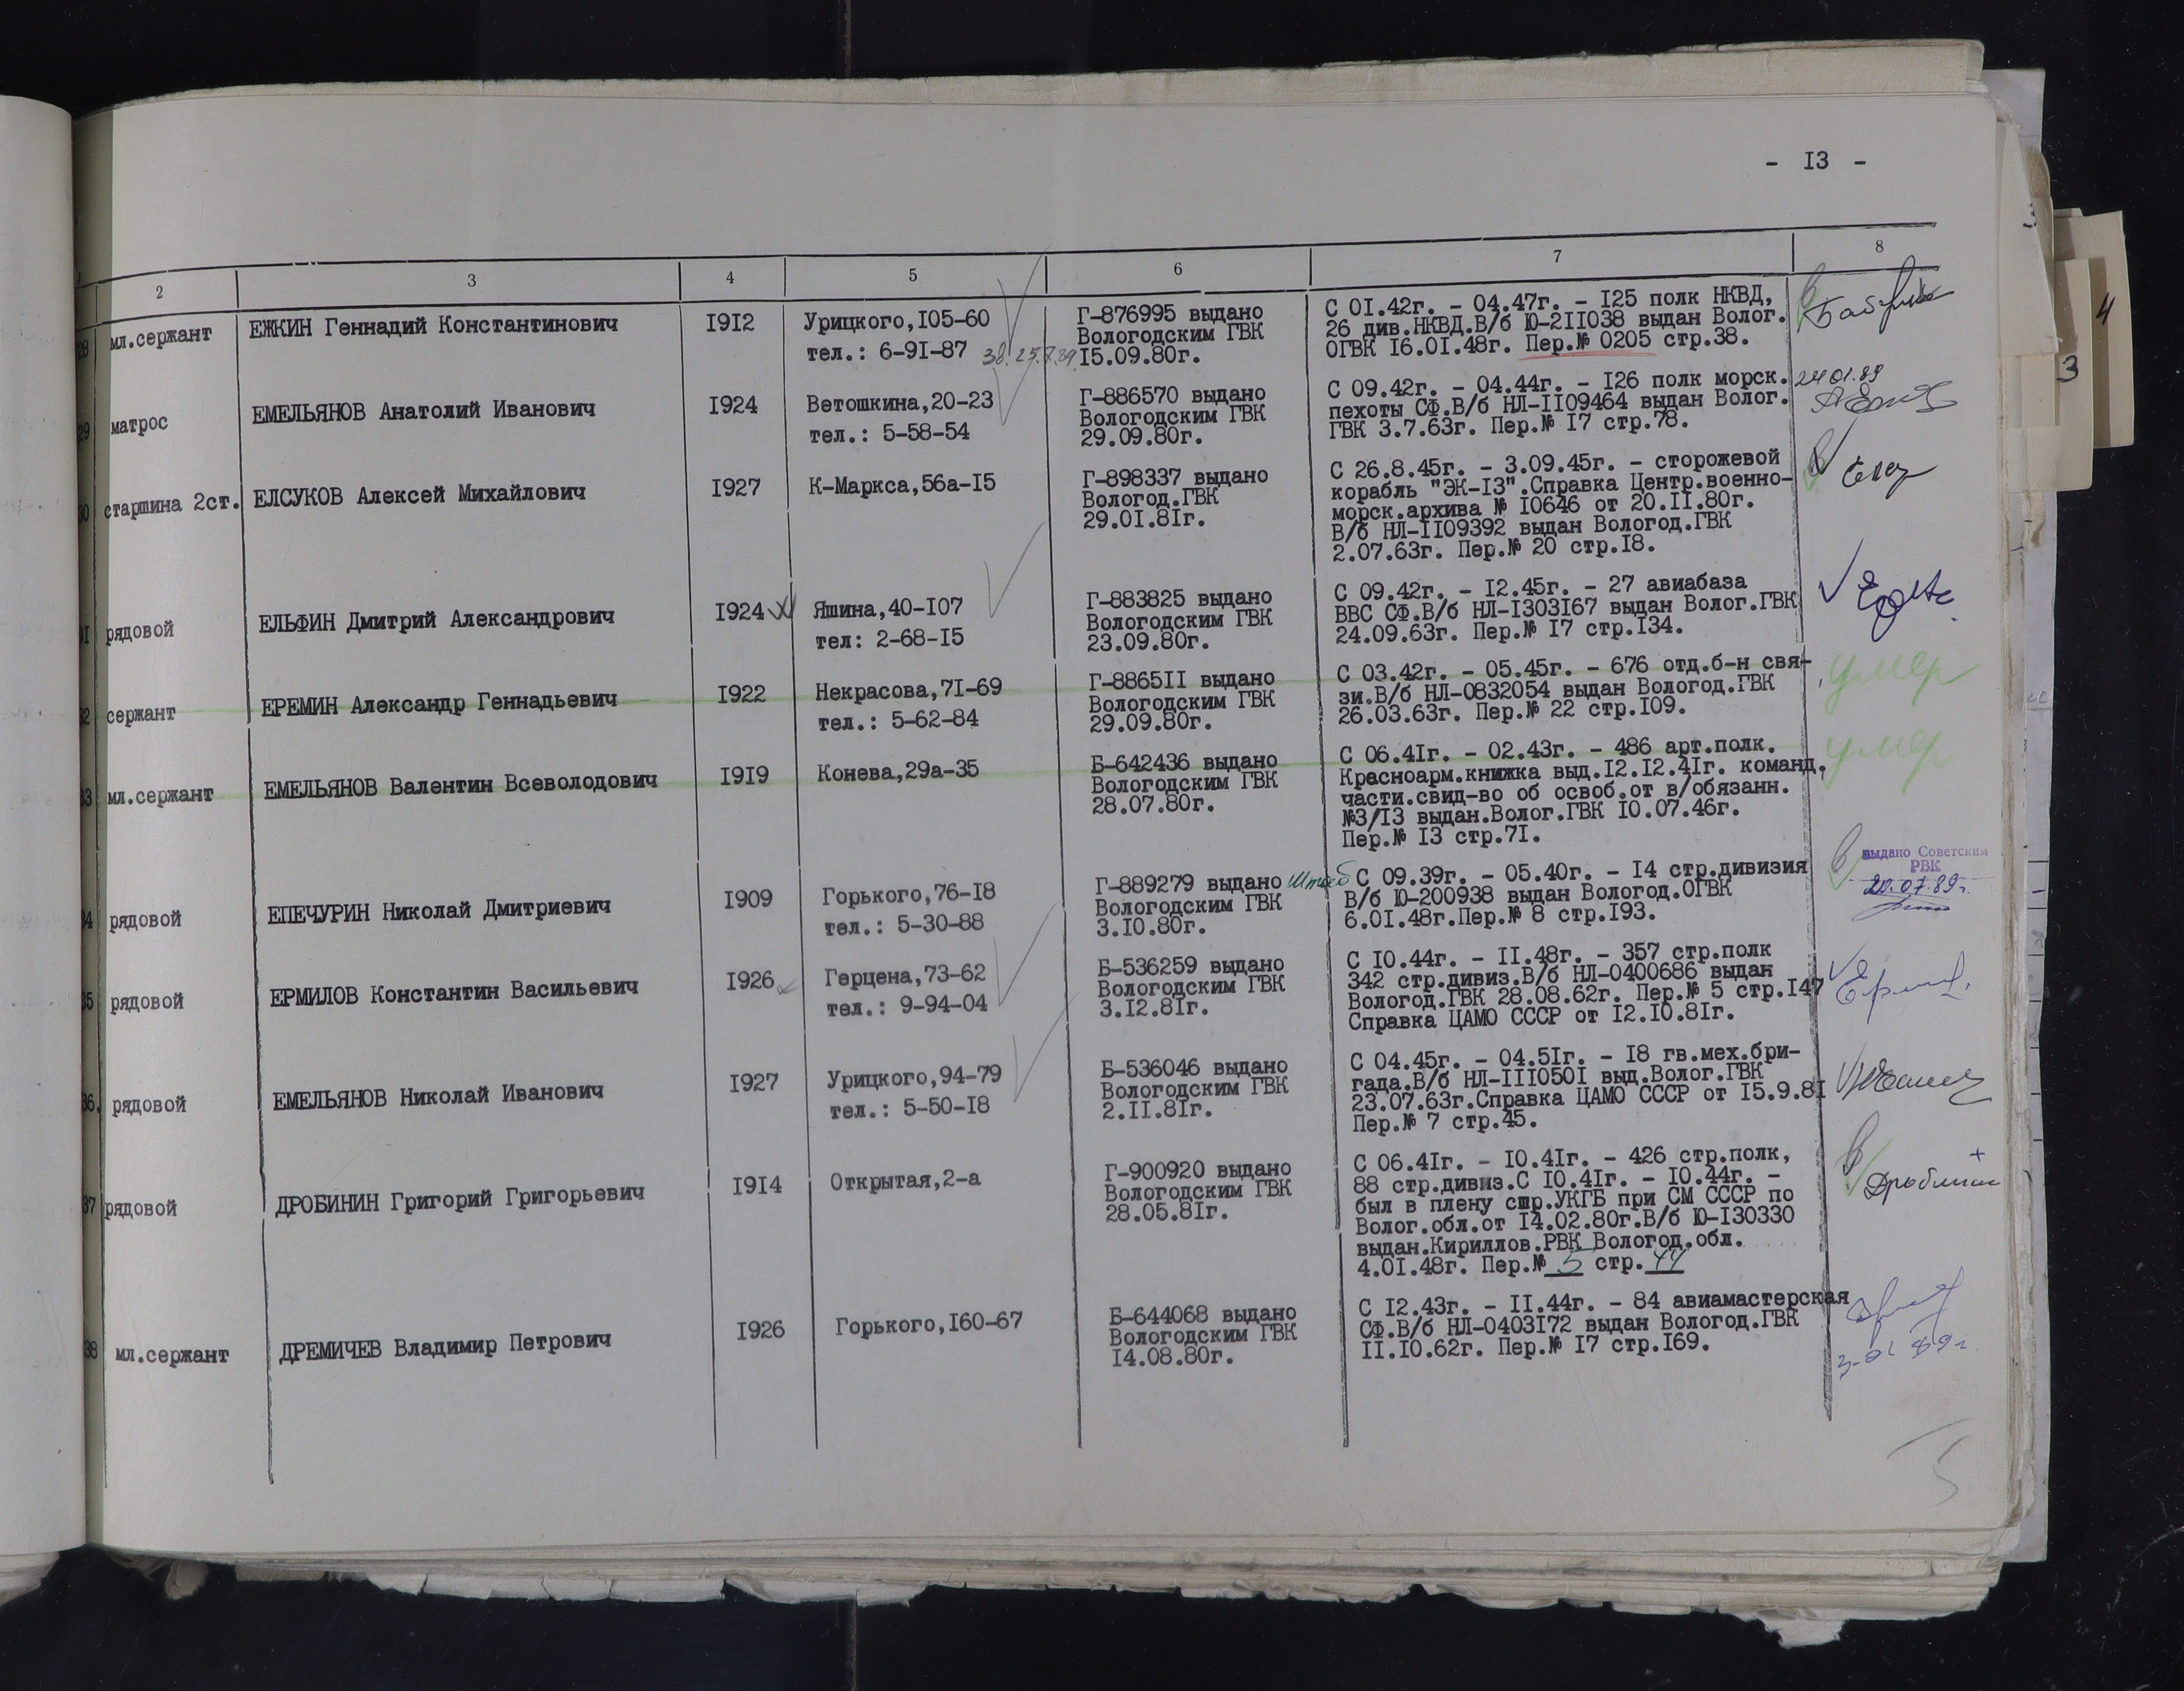 - I3 -
2 3 4 5 6 7 8
28 мл.сержант ЕЖКИН Геннадий Константинович I9I2 Урицкого,I05-60
тел.: 6-9I-87
Г-876995 выдано
Вологодским ГВК
I5.09.80г.
С 0I.42г. - 04.47г. - I25 полк НКВД,
26 див.НКВД.В/б Ю-2II038 выдан Волог.
ОГВК I6.0I.48г. Пер.№ 0205 стр.38.
29 матрос ЕМЕЛЬЯНОВ Анатолий Иванович I924 Ветошкина,20-23
тел.: 5-58-54
Г-886570 выдано
Вологодским ГВК
29.09.80г.
С 09.42г. - 04.44г. - I26 полк морск.
пехоты СФ.В/б НЛ-II09464 выдан Волог.
ГВК 3.7.63г. Пер.№ I7 стр.78.
24.01.89
30 старшина 2ст. ЕЛСУКОВ Алексей Михайлович I927 К-Маркса,56а-I5
Г-898337 выдано
Вологод.ГВК
29.0I.8Iг.
С 26.8.45г. - 3.09.45г. - сторожевой
корабль "ЭК-I3".Справка Центр.военно-
морск.архива № I0646 от 20.II.80г.
В/б НЛ-II09392 выдан Вологод.ГВК
2.07.63г. Пер.№ 20 стр.I8.
31 рядовой ЕЛЬФИН Дмитрий Александрович I924 Яшина,40-I07
тел: 2-68-I5
Г-883825 выдано
Вологодским ГВК
23.09.80г.
С 09.42г. - I2.45г. - 27 авиабаза
ВВС СФ.В/б НЛ-I303I67 выдан Волог.ГВК
24.09.63г. Пер.№ I7 стр.I34.
32 сержант ЕРЕМИН Александр Геннадьевич I922 Некрасова,7I-69
тел.: 5-62-84
Г-8865II выдано
Вологодским ГВК
29.09.80г.
С 03.42г. - 05.45г. - 676 отд.б-н свя-
зи.В/б НЛ-0832054 выдан Вологод.ГВК
26.03.63г. Пер.№ 22 стр.I09.
умер
33 мл.сержант ЕМЕЛЬЯНОВ Валентин Всеволодович I9I9 Конева,29а-35
Б-642436 выдано
Вологодским ГВК
28.07.80г.
С 06.4Iг. - 02.43г. - 486 арт.полк.
Красноарм.книжка выд.I2.I2.4Iг. команд.
части.свид-во об освоб.от в/обязанн.
№3/I3 выдан.Волог.ГВК I0.07.46г.
Пер.№ I3 стр.7I.
умер
34 рядовой ЕПЕЧУРИН Николай Дмитриевич I909 Горького,76-I8
тел.: 5-30-88
Г-889279 выдано
Вологодским ГВК
3.I0.80г.
штаб С 09.39г. - 05.40г. - I4 стр.дивизия
В/б Ю-200938 выдан Вологод.ОГВК
6.0I.48г.Пер.№ 8 стр.I93.
выдано Советским
РВК
20.07.89г.
35 рядовой ЕРМИЛОВ Константин Васильевич I926 Герцена,73-62
тел.: 9-94-04
Б-536259 выдано
Вологодским ГВК
3.I2.8Iг.
С I0.44г. - II.48г. - 357 стр.полк
342 стр.дивиз.В/б НЛ-0400686 выдан
Вологод.ГВК 28.08.62г. Пер.№ 5 стр.I47
Справка ЦАМО СССР от I2.I0.8Iг.
36. рядовой ЕМЕЛЬЯНОВ Николай Иванович I927 Урицкого,94-79
тел.: 5-50-I8
Б-536046 выдано
Вологодским ГВК
2.II.8Iг.
С 04.45г. - 04.5Iг. - I8 гв.мех.бри-
гада.В/б НЛ-III050I выд.Волог.ГВК
23.07.63г.Справка ЦАМО СССР от I5.9.8I
Пер.№ 7 стр.45.
37 рядовой ДРОБИНИН Григорий Григорьевич I9I4 Открытая,2-а
Г-900920 выдано
Вологодским ГВК
28.05.8Iг.
С 06.4Iг. - I0.4Iг. - 426 стр.полк,
88 стр.дивиз.С I0.4Iг. - I0.44г. -
был в плену спр.УКГБ при СМ СССР по
Волог.обл.от I4.02.80г.В/б Ю-I30330
выдан.Кириллов.РВК Вологод.обл.
4.0I.48г. Пер.№ 5 стр. 44
38 мл.сержант ДРЕМИЧЕВ Владимир Петрович I926 Горького,I60-67
Б-644068 выдано
Вологодским ГВК
I4.08.80г.
С I2.43г. - II.44г. - 84 авиамастерская
СФ.В/б НЛ-0403I72 выдан Вологод.ГВК
II.I0.62г. Пер.№ I7 стр.I69.
4
3